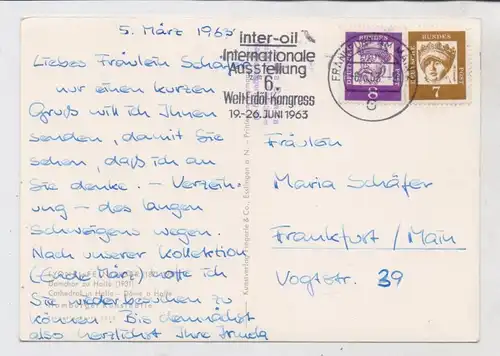 5. März 1963
Liebes Fräulein Schäfer
nur einen kurzen
Gruß will ich Ihnen
senden, damit Sie
sehen, daß ich an
Sie denke. – Verzeih-
ung – des langen
Schweigens wegen.
Nach unserer Kollektion
(Ende März) hoffe ich
Sie wiedersehen zu
können Bis demnächst
also herzlichst Ihre
inter-oil
Internationale
Ausstellung
6.
Welt-Erdöl-Kongress
19.-26. JUNI 1963
FRANKFURT
DEUTSCHE BUNDESPOST
8
DEUTSCHE BUNDESPOST
7
Fräulein
Maria Schäfer
Frankfurt/Main
Vogtstr. 39
Domchor zu Halle
Cathedral in Halle - Dôme à Halle
Kunstverlag & Co., Esslingen a. N.